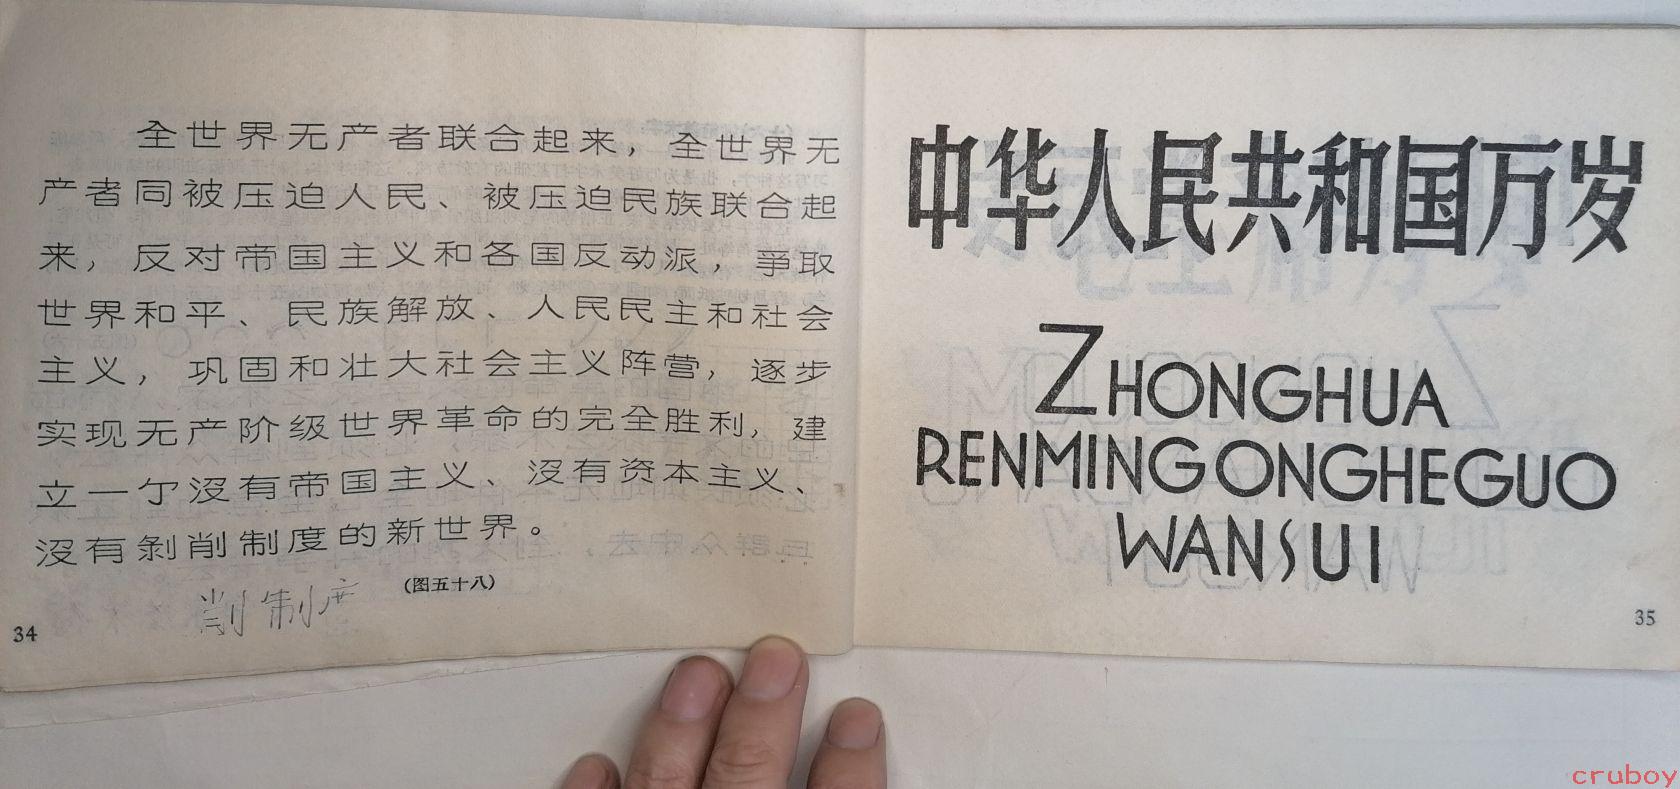 全世界无产者联合起来，全世界无
产者同被压迫人民、被压迫民族联合起
来，反对帝国主义和各国反动派，爭取
世界和平、民族解放、人民民主和社会
主义，巩固和壮大社会主义阵营，逐步
实现无产阶级世界革命的完全胜利，建
立一尓沒有帝国主义、沒有资本主义、
沒有剝削制度的新世界。
(图五十八)
削制度
34
中华人民共和国万岁
ZHONGHUA
RENMINGONGHEGUO
WANSUI
35
cruboy